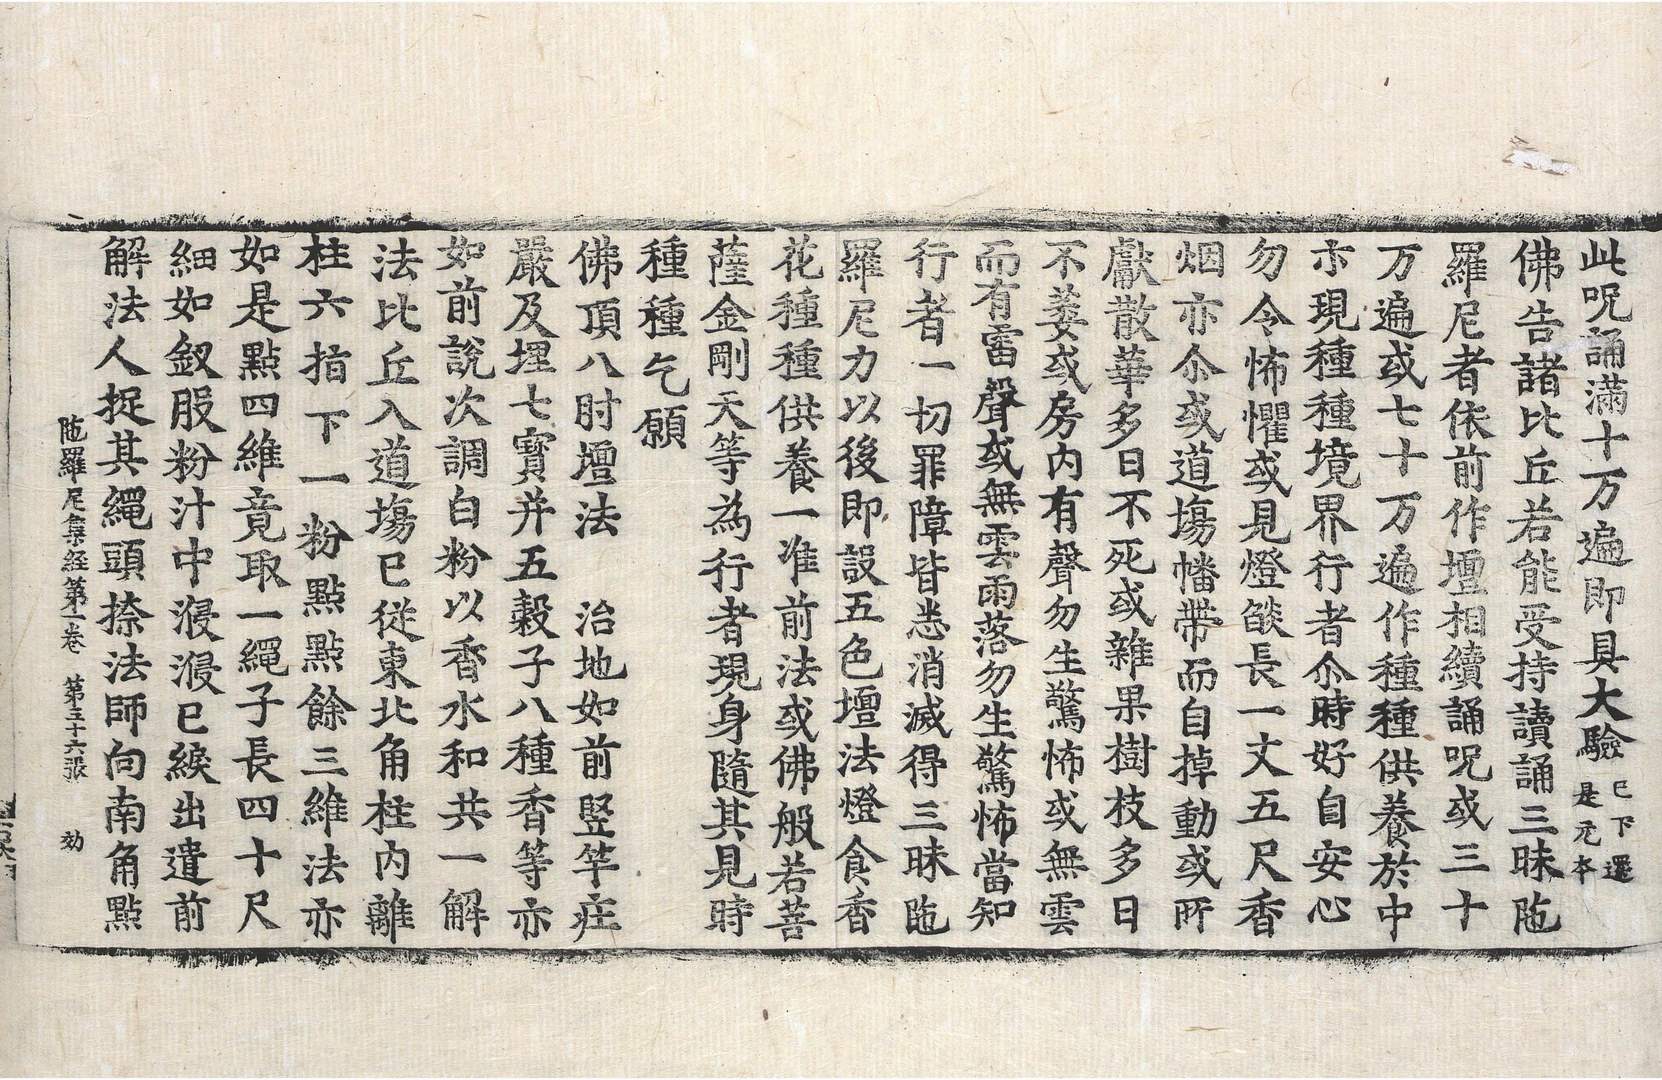 此呪誦滿十万遍即具大驗 已下還是元本
佛告諸比丘若能受持讀誦三昧陁
羅尼者依前作壇相續誦呪或三十
万遍或七十万遍作種種供養於中
示現種種境界行者尒時好自安心
勿令怖懼或見燈燄長一丈五尺香
烟亦尒或道塲幡帶而自掉動或所
獻散華多日不死或雜果樹枝多日
不萎或房內有聲勿生驚怖或無雲
而有雷聲或無雲雨落勿生驚怖當知
行者一切罪障皆悉消滅得三昧陁
羅尼力以後即設五色壇法燈食香
花種種供養一准前法或佛般若菩
薩金剛天等為行者現身隨其見時
種種乞願
佛頂八肘壇法 治地如前竪竿庄
嚴及埋七寶并五穀子八種香等亦
如前說次調白粉以香水和共一解
法比丘入道塲已從東北角柱內離
柱六指下一粉點點餘三維法亦
如是點四維竟取一繩子長四十尺
細如釵股粉汁中浸浸已綟出遣前
解法人捉其繩頭捺法師向南角點
陁羅尼集経第一卷 第三十六張 効